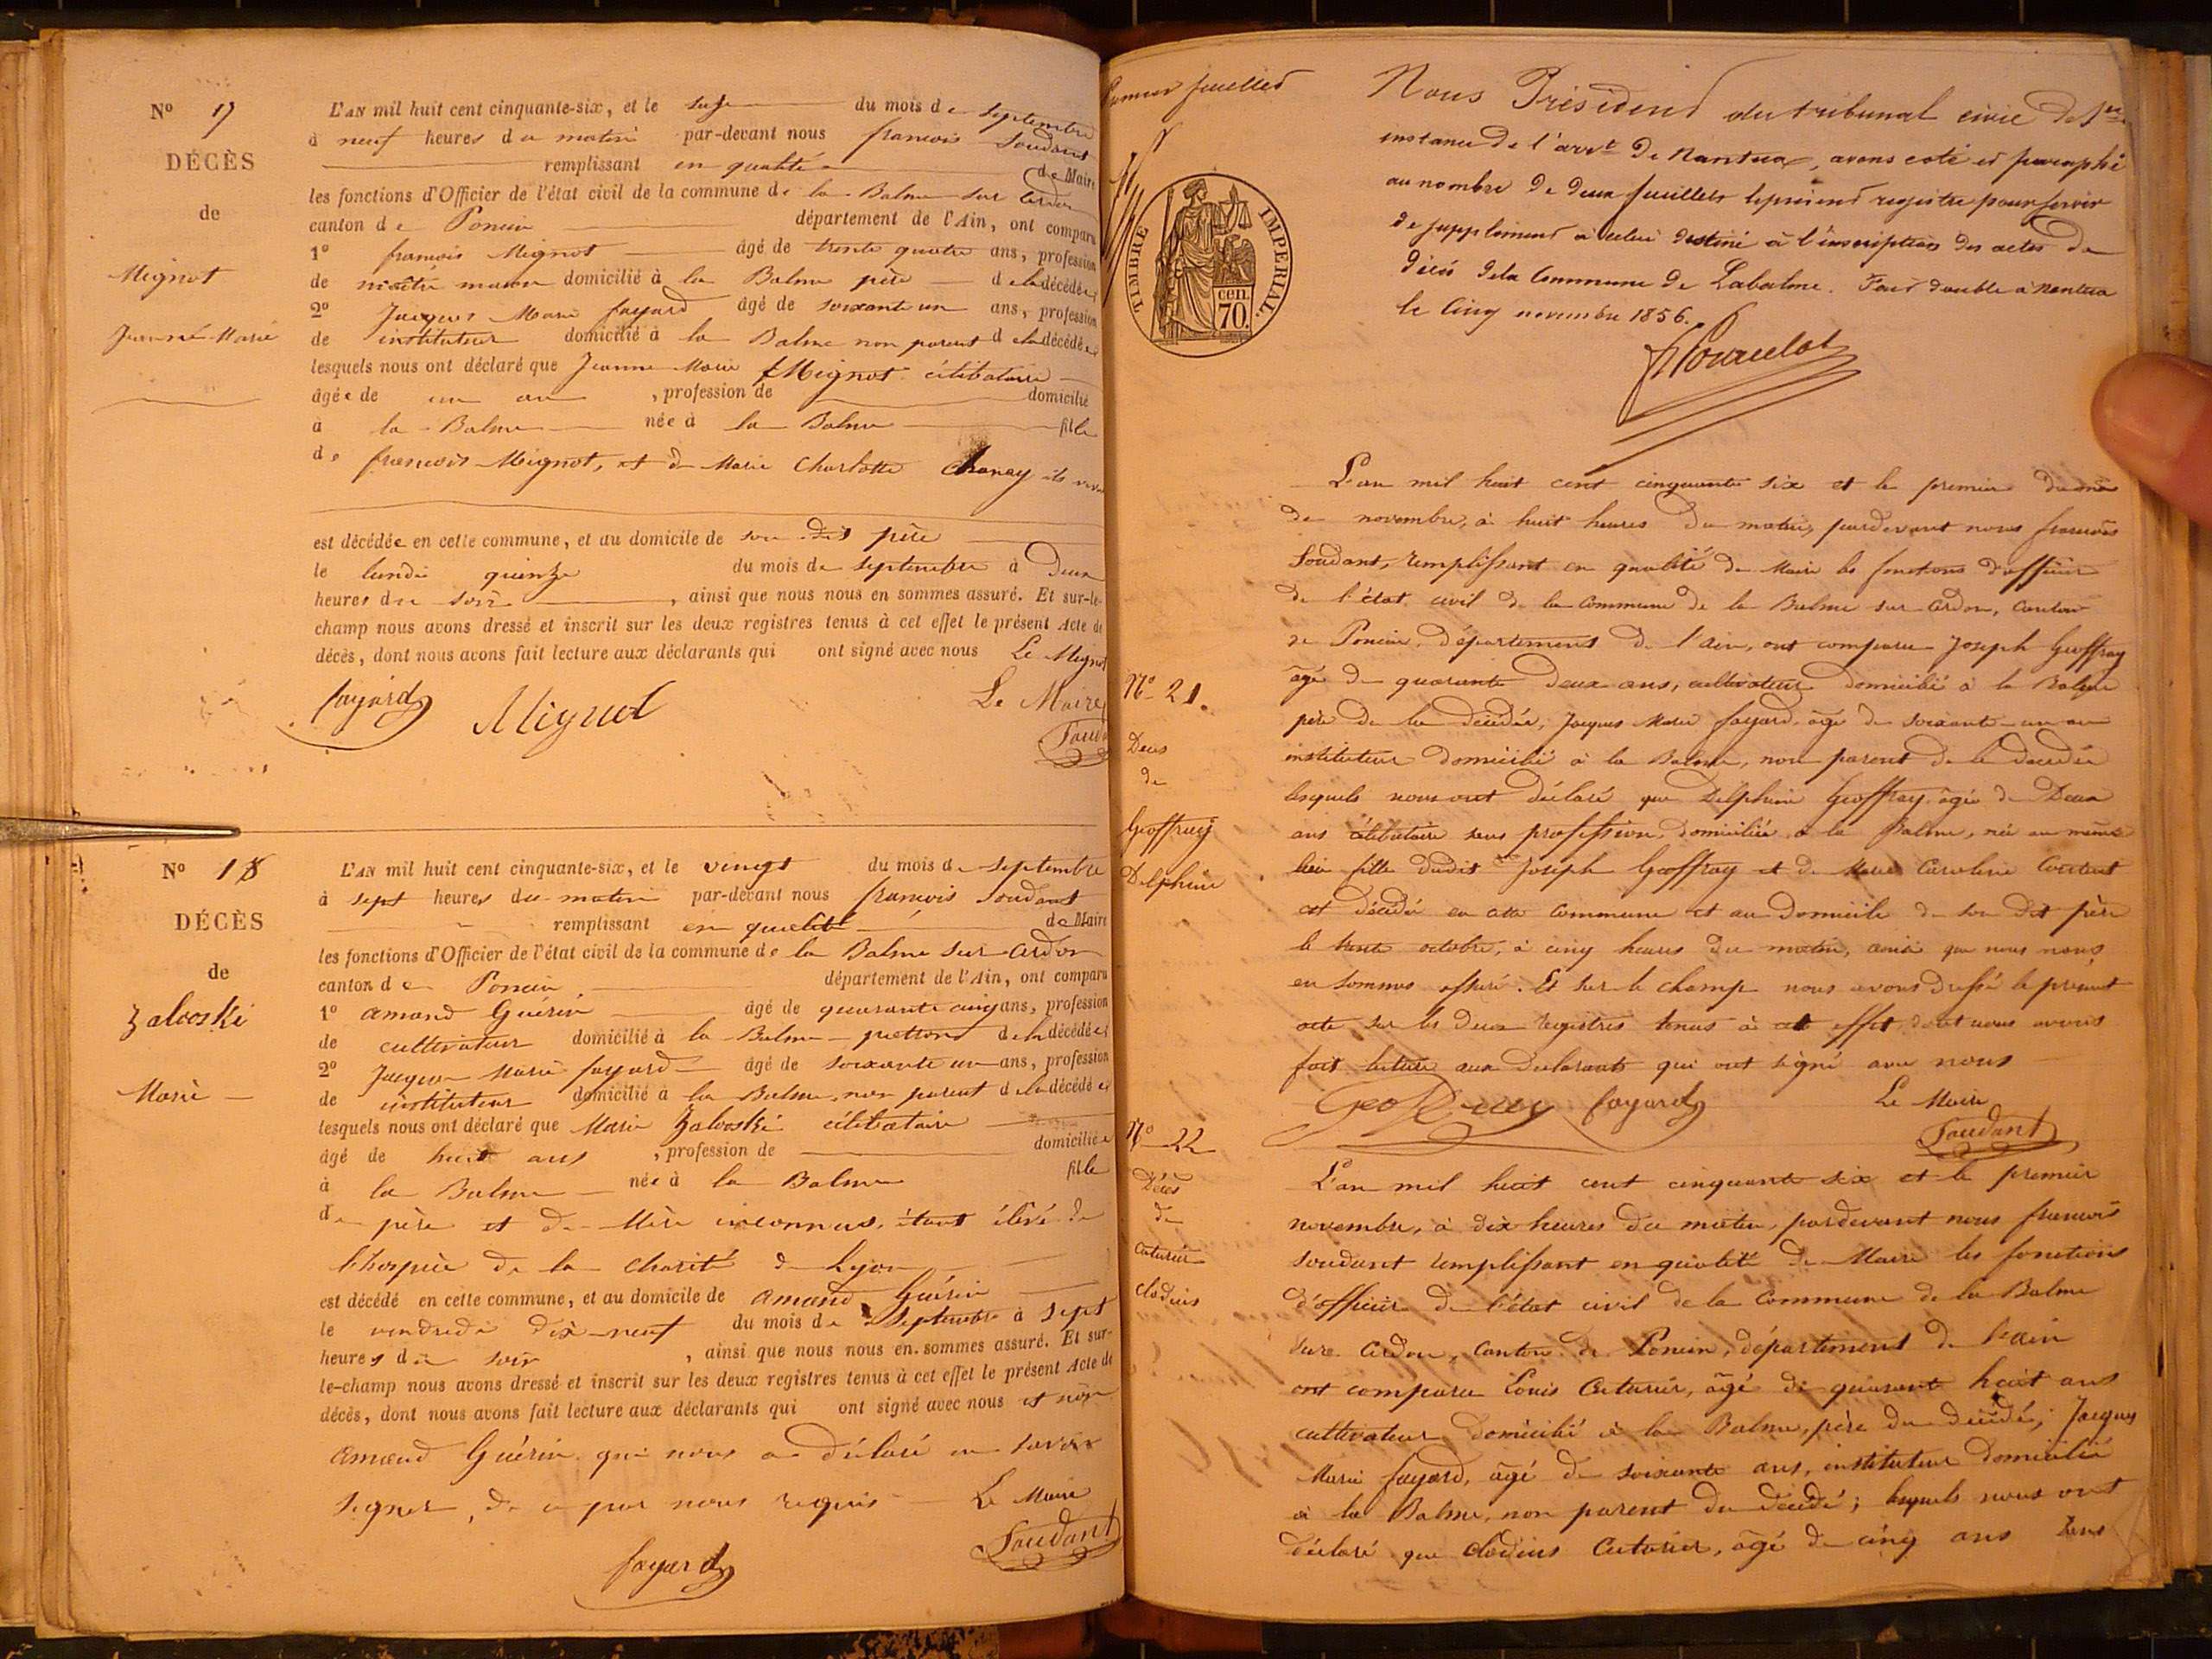 Nº 17
DÉCÈS
de
Mignot
Jeanne Marie
L'AN mil huit cent cinquante-six, et le seize du mois de septembre
à neuf heures du matin par-devant nous francois Soudant
remplissant en qualité de Maire
les fonctions d'Officier de l'état civil de la commune de la Balme sur Cerdon
canton de Poncin département de l'Ain, ont comparu
1º francois Mignot âgé de trente quatre ans, profession
de maitre macon domicilié à la Balme père de la décédée
2º Jacques Marie fayard âgé de soixante un ans, profession
de instituteur domicilié à la Balme non parent de la décédée
lesquels nous ont déclaré que Jeanne Marie Mignot célibataire
âgée de un an , profession de domicilié
à la Balme née à la Balme fille
de francois Mignot, et de Marie Charlotte Chanay
est décédée en cette commune, et au domicile de son dit père
le lundi quinze du mois de septembre à Deux
heures du soir , ainsi que nous nous en sommes assuré. Et sur-le-
champ nous avons dressé et inscrit sur les deux registres tenus à cet effet le présent Acte de
décès, dont nous avons fait lecture aux déclarants qui ont signé avec nous Le Mignot
fayard Mignot Le Maire
Soudant
Nº 18
DÉCÈS
de
Zalooski
Marie
L'AN mil huit cent cinquante-six, et le vingt du mois de septembre
à sept heures du matin par-devant nous francois Soudant
remplissant en qualité de Maire
les fonctions d'Officier de l'état civil de la commune de la Balme sur Cerdon
canton de Poncin département de l'Ain, ont comparu
1º amand Guérin âgé de quarante cinq ans, profession
de cultivateur domicilié à la Balme patron de la décédée
2º Jacques Marie fayard âgé de soixante un ans, profession
de instituteur domicilié à la Balme, non parent de la décédée
lesquels nous ont déclaré que Marie Zalooski célibataire
âgé de huit ans , profession de domiciliée
à la Balme née à la Balme fille
de père et de Mère inconnus, étant élève de
l'hospice de la charité de Lyon
est décédé en cette commune, et au domicile de amand Guérin
le vendredi dix-neuf du mois de septembre à sept
heures du soir , ainsi que nous nous en sommes assuré. Et sur-
le-champ nous avons dressé et inscrit sur les deux registres tenus à cet effet le présent Acte de
décès, dont nous avons fait lecture aux déclarants qui ont signé avec nous et non
amand Guérin qui nous a déclaré ne savoir
signer, de ce par nous requis Le Maire
fayard Soudant
Premier feuillet
TIMBRE IMPERIAL.
70. cen
Nous Président du tribunal civil de 1re
instance de l'arrt de Nantua, avons coté et paraphé
au nombre de deux feuillets le présent registre pour servir
de supplément à celui destiné à l'inscription des actes de
décès de la Commune de Labalme. Fait double à Nantua
le Cinq novembre 1856.
Nº 21.
Deces
de
Geoffray
Delphine
L'an mil huit cent cinquante six et le premier du mois
de novembre, à huit heures du matin, pardevant nous francois
Soudant, remplissant en qualité de Maire les fonctions d'officier
de l'état civil de la Commune de la Balme sur Cerdon, Canton
de Poncin, département de l'ain, ont comparu Joseph Geoffray
âgé de quarante deux ans, cultivateur domicilié à la Balme
père de la décédée, Jacques Marie fayard, âgé de soixante-un an
instituteur domicilié à la Balme, non parent de la décédée
lesquels nous ont déclaré que Delphine Geoffray âgée de Deux
ans célibataire sans profession, domiciliée à la Balme, née au même
lieu fille dudit Joseph Geoffray et de Marie Caroline
est décédée en cette Commune et au Domicile de son dit père
le trente octobre, à cinq heures du matin, ainsi que nous nous
en sommes assuré. Et sur le champ nous avons dressé le présent
acte sur les deux registres tenus à cet effet, dont nous avons
fait lecture aux déclarants qui ont signé avec nous
Geoffray fayard Le Maire
Soudant
Nº 22
Décès
de
Cuturier
clodius
L'an mil huit cent cinquante six et le premier
novembre, à dix heures du matin, pardevant nous francois
soudant remplissant en qualité de Maire les fonctions
d'officier de l'état civil de la Commune de la Balme
sur Cerdon, Canton de Poncin, département de l'ain
ont comparu Louis Cuturier, âgé de quarante huit ans
cultivateur domicilié à la Balme, père du décédé; Jacques
Marie fayard, âgé de soixante ans, instituteur domicilié
à la Balme, non parent du décédé; lesquels nous ont
déclaré que clodius Cuturier, âgé de cinq ans sans